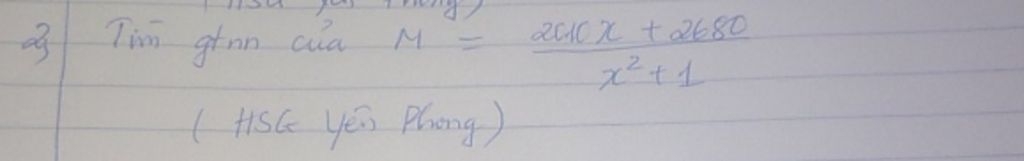 (HSG Yên Phong)
2) Tìm gtnn của M = \frac{2010x + 2680}{x^2 + 1}
(HSG Yên Phong)